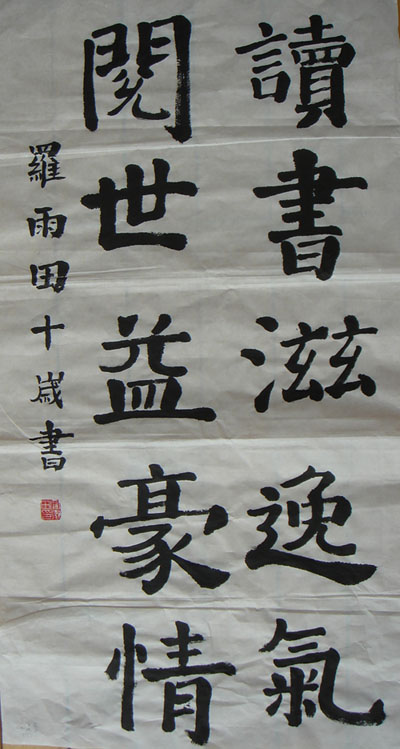 讀書滋逸氣
閱世益豪情
羅雨田十歲書